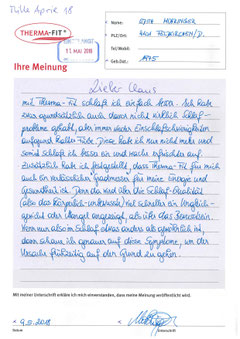 Mitte April 18
THERMA-FIT®
15. MAI 2018
Name:
PLZ/Ort:
Tel/Mobil:
Geb. Dat.:
1975
Ihre Meinung
Lieber Claus
mit Therma-Fit schlafe ich einfach besser. Ich habe
zwar grundsätzlich auch davor nicht wirklich Schlaf-
probleme gehabt, aber immer wieder Einschlafschwierigkeiten
aufgrund kalter Füße. Diese habe ich nun nicht mehr und
somit schlafe ich besser ein und wache erfrischter auf.
Zusätzlich habe ich festgestellt, dass Therma-Fit für mich
auch ein verlässlicher Gradmesser für meine Energie und
Gesundheit ist. Denn da wird über die Schlaf-Qualität
(also das körperlich-unbewusste) viel schneller ein Ungleich-
gewicht oder Mangel angezeigt, als über das Bewusstsein.
Wenn nun also im Schlaf etwas anders als gewöhnlich ist,
dann schaue ich genauer auf diese Symptome, um der
Ursache frühzeitig auf den Grund zu gehen.
Mit meiner Unterschrift erkläre ich mich einverstanden, dass meine Meinung veröffentlicht wird.
9.5.2018
Datum
Unterschrift